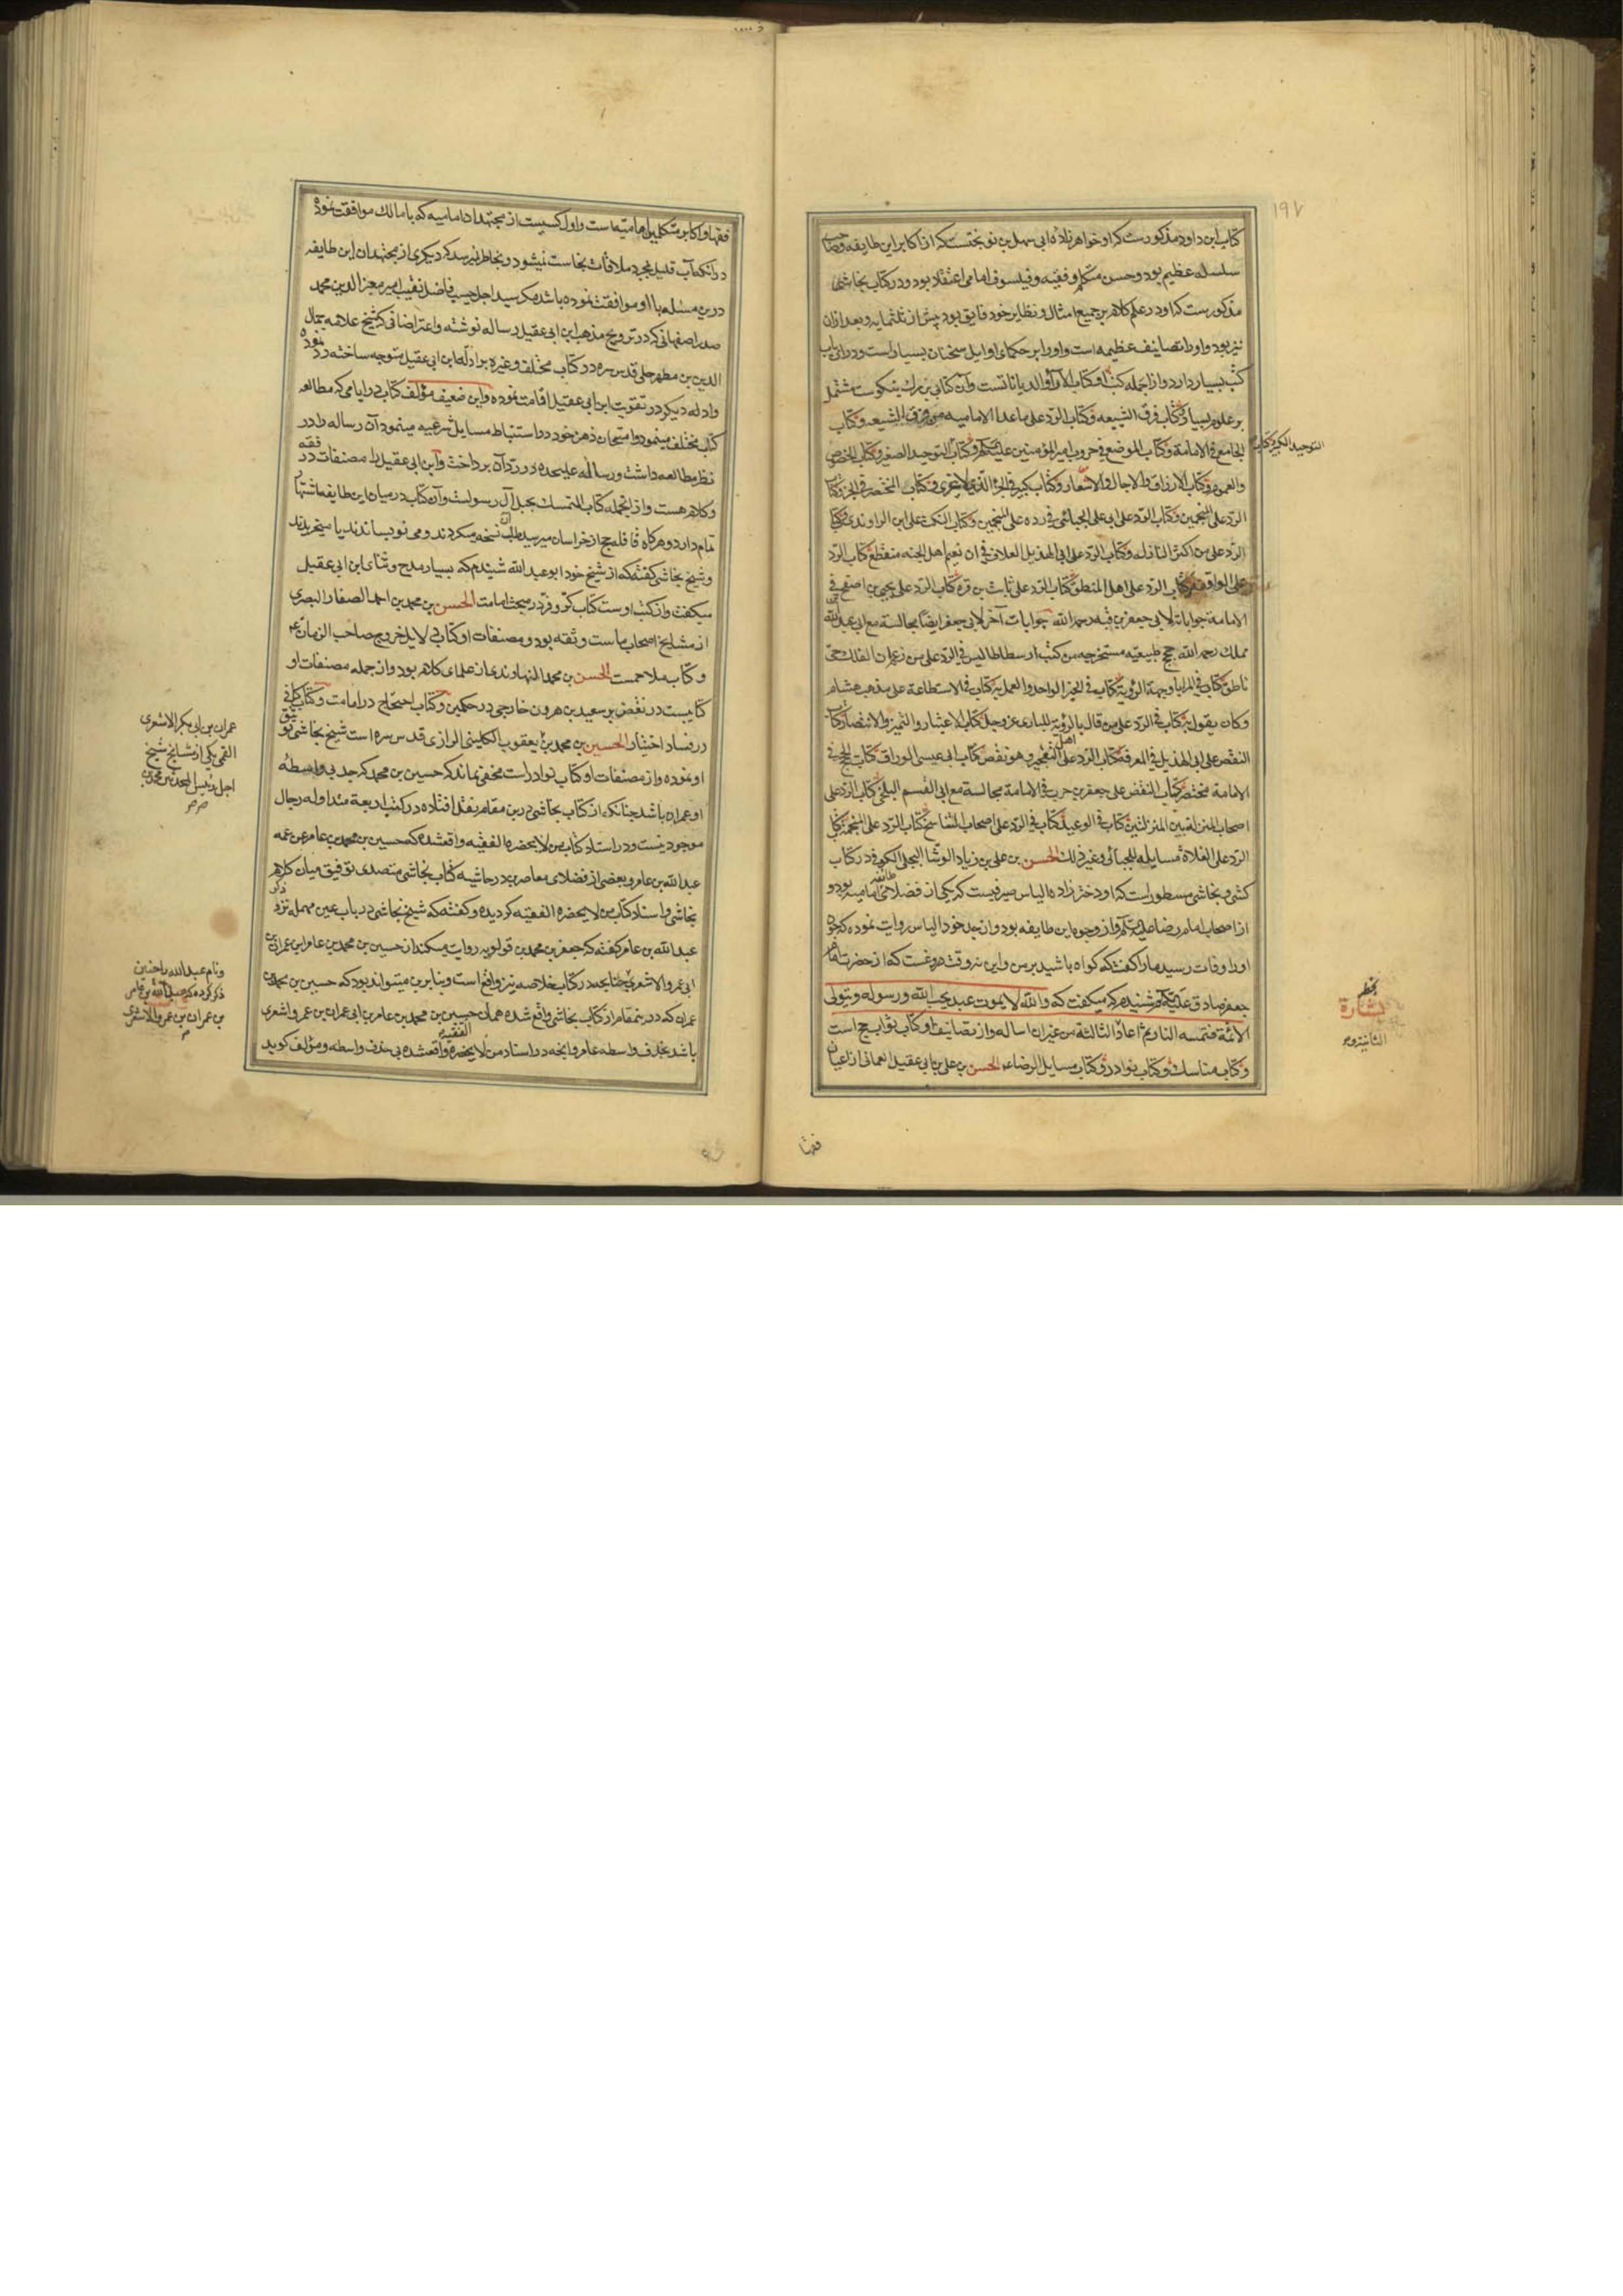 ۱۹۷
کتاب ابن داود مذکورست که او خواهرزاده ابی سهل بن نوبختست که از اکابر این طایفه وصاحب
سلسله عظیم بود وحسن متکلم وفقیه وفیلسوف امامی اعتقاد بود ودر کتاب نجاشی
مذکورست که او در علم کلام بر جمیع امثال ونظایر خود فایق بود پیش از ثلثمایه وبعد از آن
نیز بود واو را تصانیف عظیمه است واو را بر حکمای اوایل سخنان بسیار است ودر آن باب
کتب بسیار دارد واز جمله کتب او کتاب الآراء والدیاناتست وآن کتابی بزرک نیکوست مشتمل
بر علوم بسیار وکتاب فرق الشیعه وکتاب الرد علی ما عدا الامامیه من فرق الشیعه وکتاب
الجامع فی الامامة وکتاب الموضع فی حروب امیر المؤمنین علیه السلم وکتاب التوحید الصغیر وکتاب الخصوص
التوحید الکبیر وکتاب
والعموم وکتاب الارزاق والآجال والاسعار وکتاب کبیر فی الجزء الذی لا یتجزی وکتاب المختصر فی الجزء وکتاب
الرد علی المنجمین وکتاب الرد علی ابی علی الجبائی فی رده علی المنجمین وکتاب النکت علی ابن الراوندی وکتاب
الرد علی من اکثر المنازله وکتاب الرد علی ابی الهذیل العلاف فی ان نعیم اهل الجنه منقطع کتاب الرد
علی الواقفه کتاب الرد علی اهل المنطق کتاب الرد علی ثابت بن قره کتاب الرد علی یحیی بن اصفح فی
الامامة جوابات لابی جعفر بن قبه رحمه الله جوابات آخر لابی جعفر ایضا مجالسة مع ابی عبد الله بن
مملک رحمه الله حجج طبیعیه مستخرجه من کتب ارسطاطالیس فی الرد علی من زعم ان الفلک حی
ناطق کتاب فی المرایا وجهة الرؤیة کتاب فی الخبر الواحد والعمل به کتاب فی الاستطاعة علی مذهب هشام
وکان یقول به کتاب فی الرد علی من قال بالرؤیه للباری عز وجل کتاب الاعتبار والتمییز والانتصار کتاب
النقض علی ابی الهذیل فی المعرفة کتاب الرد علی اهل التعجیز وهو نقض کتاب ابی عیسی الوراق کتاب الحجج فی
الامامة مختصر کتاب النقض علی جعفر بن حرب فی الامامة مجالسة مع ابی القسم البلخی کتاب الرد علی
اصحاب المنزلة بین المنزلتین کتاب فی الوعید کتاب فی الرد علی اصحاب التناسخ کتاب الرد علی المجسمة کتاب
الرد علی الغلاة مسایله للجبائی وغیر ذلک الحسن بن علی بن زیاد الوشا البجلی الکوفی در کتاب
کشی ونجاشی مسطورست که او دخترزاده الیاس صیرفیست که یکی از فضلای طایفه امامیه بود و
از اصحاب امام رضا علیه السلم واز وجوه این طایفه بود واز جد خود الیاس روایت نموده که چون
او را وفات رسید ما را گفت که کواه باشید بر من واین نه وقت دروغست که از حضرت امام
جعفر صادق علیه السلم شنیدم که میکفت که والله لا یموت عبد یحب الله ورسوله ویتولی
الائمة فتمسه النار ثم اعاد الثالثة من غیر ان اساله واز تصانیف او کتاب ثواب حج است
وکتاب مناسک وکتاب نوادر وکتاب مسایل الرضا ع الحسن بن علی بن ابی عقیل العمانی از اعیان
بشارة
فقها
فقها واکابر متکلمین امامیه است واول کسیست از مجتهدان امامیه که با مالک موافقت نموده
در آنکه آب قلیل بمجرد ملاقات نجاست نجس نمیشود وبخاطر نمیرسد که دیکری از مجتهدان این طایفه
در این مسئله با او موافقت نموده باشد مکر سید اجل حسیب فاضل نقیب امیر معز الدین محمد
صدر اصفهانی که در ترویج مذهب ابن ابی عقیل رساله نوشته واعتراضاتی که شیخ علامه جمال
الدین بن مطهر حلی قدس سره در کتاب مختلف وغیره بر ادله ابن ابی عقیل متوجه ساخته رد نموده
وادله دیکر در تقویت ابن ابی عقیل اقامت نموده واین ضعیف مؤلف کتاب در ایامی که مطالعه
کتاب مختلف مینمود وامتحان ذهن خود در استنباط مسایل شرعیه مینمود آن رساله را در
نظر مطالعه داشت ورساله علیحده در رد آن پرداخت وابن ابی عقیل را مصنفات در فقه
وکلام هست واز آنجمله کتاب المتمسک بحبل آل رسولست وآن کتاب در میان این طایفه اشتهار
تمام دارد وهرکاه قافله حج از خراسان میرسید طلب آن نسخه میکردند ومی نویساندند یا میخریدند
وشیخ نجاشی کفته که از شیخ خود ابو عبد الله شنیدم که بسیار مدح وثنای ابن ابی عقیل
میکفت واز کتب اوست کتاب کر وفر در مبحث امامت الحسن بن محمد بن احمد الصفار البصری
از مشایخ اصحاب ماست وثقه بود ومصنفات او کتاب دلایل خروج صاحب الزمان ع
وکتاب ملاحمست الحسن بن محمد النهاوندی از علمای کلام بود واز جمله مصنفات او
کتابیست در نقض بر سعید بن هرون خارجی در حکمین وکتاب احتجاج در امامت وکتاب کافی
در فساد اختیار الحسین بن محمد بن یعقوب الکلینی الرازی قدس سره است شیخ نجاشی توثیق
او نموده واز مصنفات او کتاب نوادر است مخفی نماند که حسین بن محمد که جد بی واسطه
او عمران باشد چنانکه از کتاب نجاشی در این مقام نقل افتاده در کتب اربعه متداوله رجال
موجود نیست ودر اسناد کتاب من لا یحضره الفقیه واقع شده که حسین بن محمد بن عامر عن عمه
عبد الله بن عامر وبعضی از فضلای معاصرین در حاشیه کتاب نجاشی متصدی توفیق میان کلام
نجاشی واسناد کتاب من لا یحضره الفقیه کردیده وکفته که شیخ نجاشی در باب عین مهمله نزد ذکر
عبد الله بن عامر کفته که جعفر بن محمد بن قولویه روایت میکند از حسین بن محمد بن عامر ابن عمران بن
ابی عمرو الاشعری چنانچه در کتاب خلاصه نیز واقع است وبنابرین میتواند بود که حسین بن محمد بن
عمران که در این مقام از کتاب نجاشی واقع شده همان حسین بن محمد بن عامر بن ابی عمران بن عمرو اشعری
باشد بحذف واسطه عامر وآنچه در اسناد من لا یحضره الفقیه واقعشده بی حذف واسطه ومؤلف کوید
عمران بن ابی بکر الاشعری
القمی یکی از مشایخ شیخ
اجل رئیس المحدثین محمد بن
ونام عبد الله را چنین
ذکر کرده که عبد الله بن عامر
بن عمران بن عمرو الاشعری